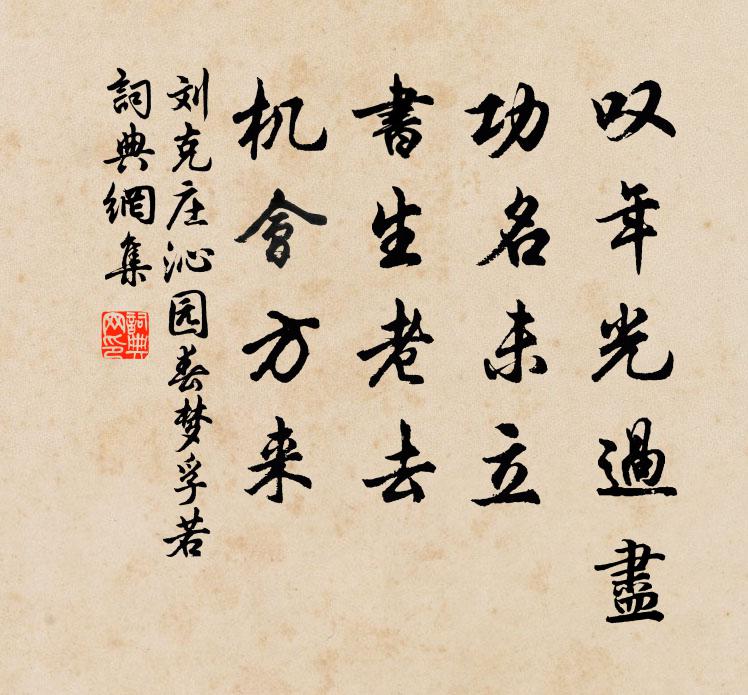 叹年光過盡
功名未立
書生老去
机會方来
刘克庄沁园春梦孚若
詞典網集
詞典網印